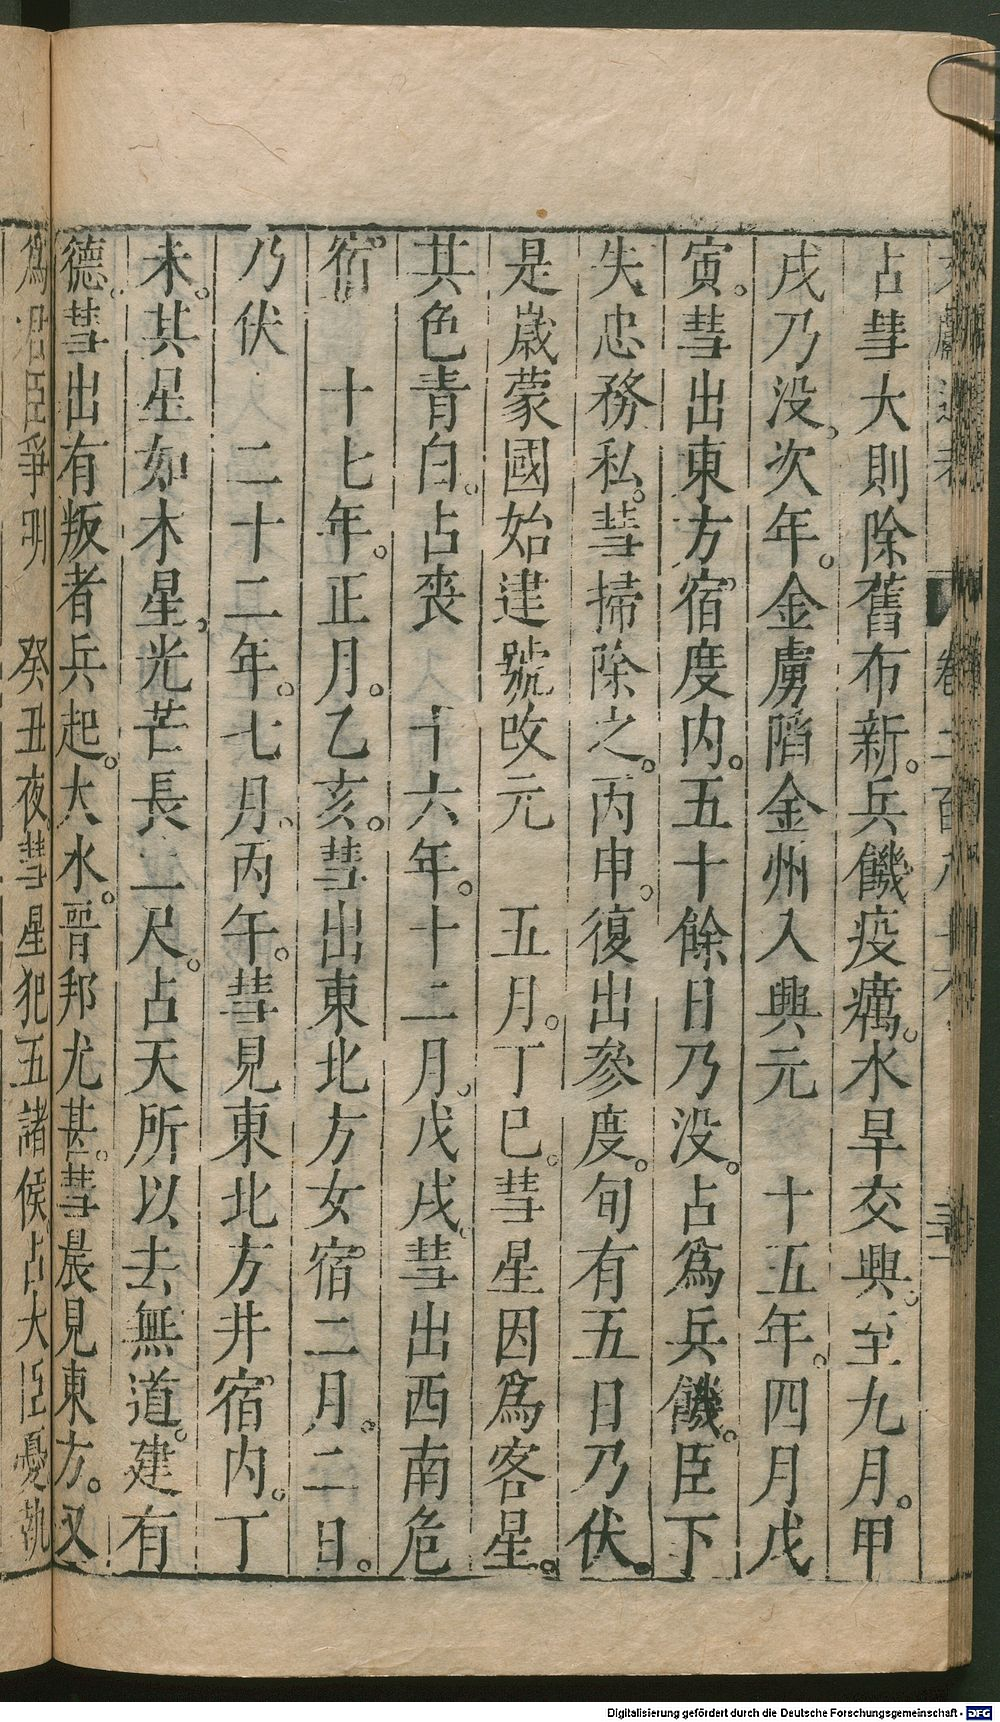 占彗大則除舊布新。兵饑疫癘。水旱交興。至九月。甲
戌乃没。次年。金虜陷金州入興元　十五年。四月戊
寅。彗出東方宿度内。五十餘日乃没。占爲兵饑。臣下
失忠務私。彗掃除之。丙申。復出參度。旬有五日乃伏。
是歲蒙國始建號改元　五月。丁巳。彗星因爲客星。
其色青白。占喪　十六年。十二月。戊戌。彗出西南危
宿　十七年。正月。乙亥。彗出東北方女宿二月。二日。
乃伏　二十二年。七月。丙午。彗見東北方井宿内。丁
未。其星如木星。光芒長二尺。占天所以去無道。建有
德。彗出有叛者兵起。大水。晉邦尤甚。彗晨見東方。又
爲君臣爭明　癸丑夜彗星犯五諸侯占大臣憂執
卷二百八十六
Digitalisierung gefördert durch die Deutsche Forschungsgemeinschaft - DFG